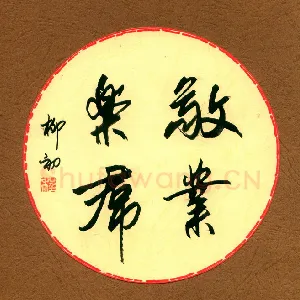 敬業
樂羣
柳
shufawang.CN